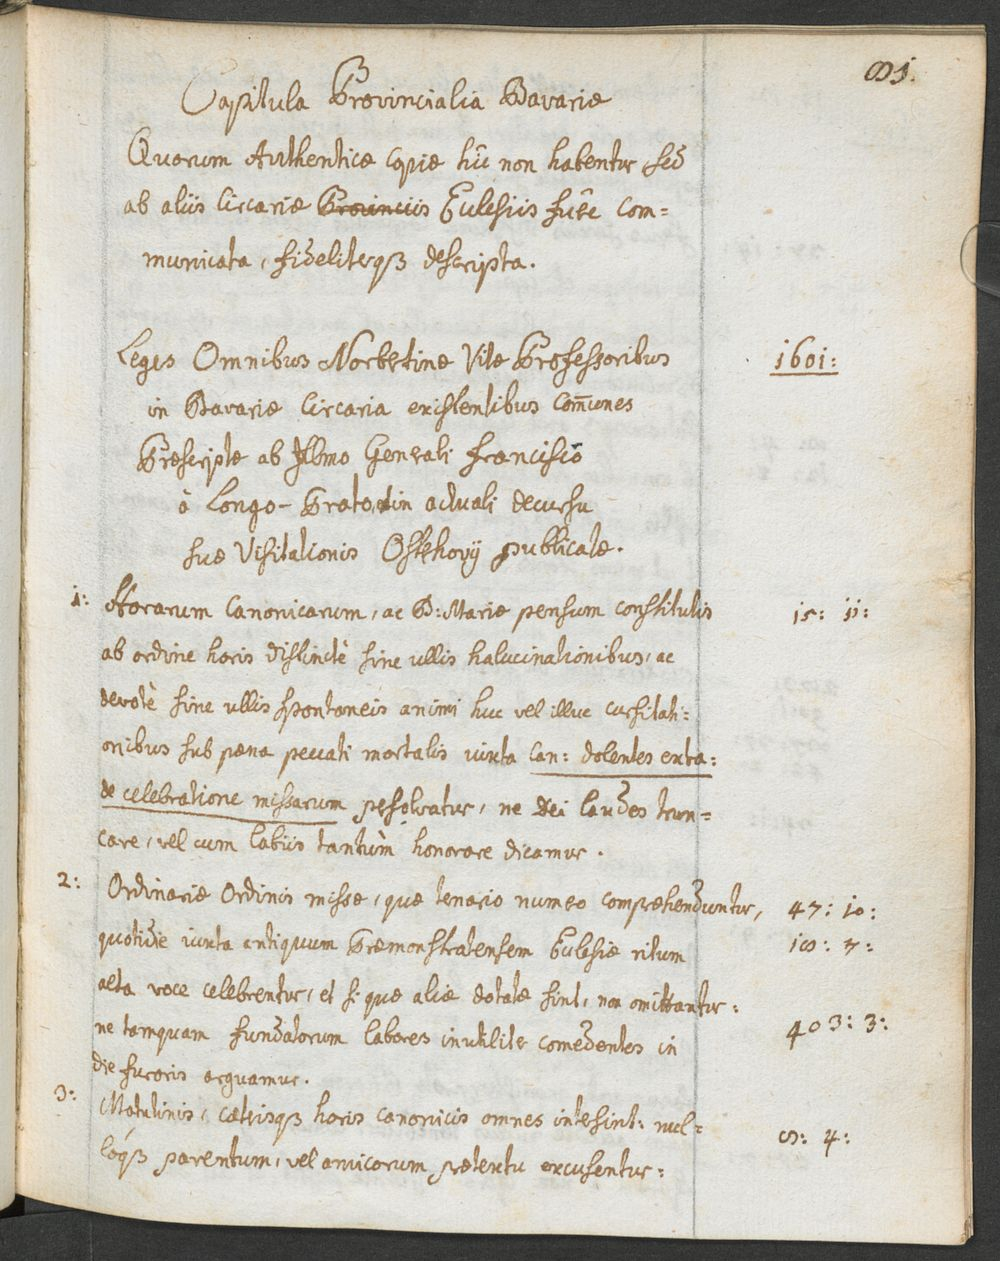 Capitula Provincialia Bavariæ
Quorum Authenticæ copiæ hic non habentur sed
ab aliis Circariæ Provinciis Ecclesiis fuêre com=
municata, fideliterqß descripta.
Leges Omnibus Norbetinæ Vitæ Professoribus
1601:
in Bavariæ Circaria existentibus Com̄unes
Præscriptæ ab Illmo Generali francisco
à Longo-Prato, in actuali decursu
suæ Visitationis Osterhovij publicatæ.
1: Horarum Canonicarum, ac B: Mariæ pensum constitutis 15: 11:
ab ordine horis distinctè sine ullis halucinationibus, ac
devotè sine ullis spontaneis animi huc vel illuc cursitati=
onibus sub pæna peccati mortalis iuxta Can: dolentes extra:
de celebratione missarum persolvatur, ne Dei laudes trun=
care, vel cum labiis tantùm honorare dicamur.
2: Ordinariæ Ordinis missæ, quæ tenario numero comprehenduntur, 47: 10:
quotidie iuxta antiquum Præmonstratensem Ecclesiæ ritum
alta voce celebrentur, et si quæ aliæ dotatæ sint, non omittantur:
ne tamquam fundatorum labores inutiliter comedentes in 403: 3:
die furoris arguamur.
3: Matutinis, cæterisqß horis canonicis omnes intersint: nul=
lóqß parentum, vel amicorum prætextu excusentur: